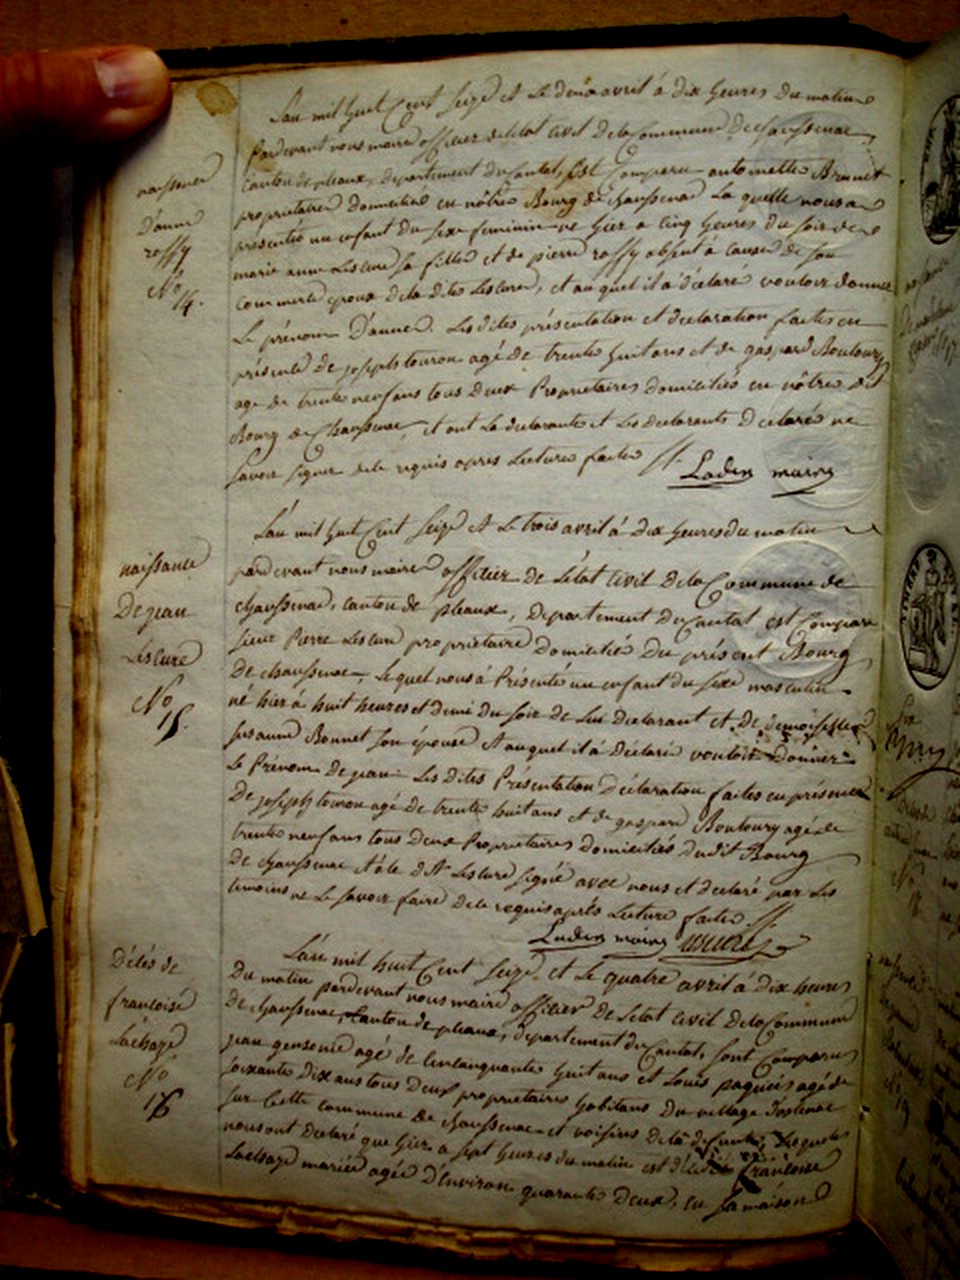 naissance
D'anne
roffy
No
14.
L'an mil huit Cent Seize et Le deux avril à dix heures du matin
Pardevant nous maire officier de létat civil de la Commune de chaussenac,
Canton de pleaux, departement du Cantal, Est Comparue antoinette Brunet
propriétaire domiciliée en nôtre Bourg de chaussenac La quelle nous a
présenté un enfant du sexe feminin né hier a cinq heures du soir de
marie anne Lescure sa fille et de pierre roffy absent à cause de son
commerce epoux de la dite Lescure, et au quel il a déclaré vouloir donner
Le prénom D'anne. Les dites présentation et declaration faites en
présence de joseph touron agé de trente huit ans et de gaspard Boutoury
age de trente neuf ans tous deux Propriétaires domiciliés en nôtre dit
Bourg de Chaussenac, et ont La declarante et Les declarants declaré ne
savoir signer de le requis apres Lecture faite
Laden maire
naissance
De jean
Lescure
No
15.
L'an mil huit Cent Seize et Le trois avril à dix heures du matin
pardevant nous maire officier de Létat Civil de la Commune de
chaussenac, canton de pleaux, Departement du Cantal est Comparu
sieur Pierre Lescure propriétaire domicilié du présent Bourg
De chaussenac, Lequel nous à Présenté un enfant du sexe masculin
né hier à huit heures et demi du soir de Lui declarant et de demoiselle
susanne Bonnet son épouse et auquel il à Déclaré vouloir Donner
Le Prénom De jean Les dites Présentation Déclaration faites en présence
De joseph touron agé de trente huit ans et de gaspard Boutoury agé de
trente neuf ans tous Deux Propriétaires domiciliés dudit Bourg
de chaussenac Lescure signé avec nous et declaré par Les
temoins ne Le savoir faire de le requis après Lecture faite
Laden maire Lescure
Décès de
francoise
Lachaze
No
16
L'an mil huit Cent Seize et Le quatre avril à dix heures
Du matin pardevant nous maire officier De Létat Civil de la Commune
De chaussenac, Canton de pleaux, département du Cantal, sont Comparus
jean gensonie agé de Cinquante huit ans et Louis paqueis agé de
soixante Dix ans tous Deux propriétaires habitans Du village
sur Cette commune de chaussenac et voisins de la défunte, Lesquels
nous ont déclaré que hier a sept heures du matin est décédée francoise
Lachaze mariée agée D'environ quarante Deux, en sa maison